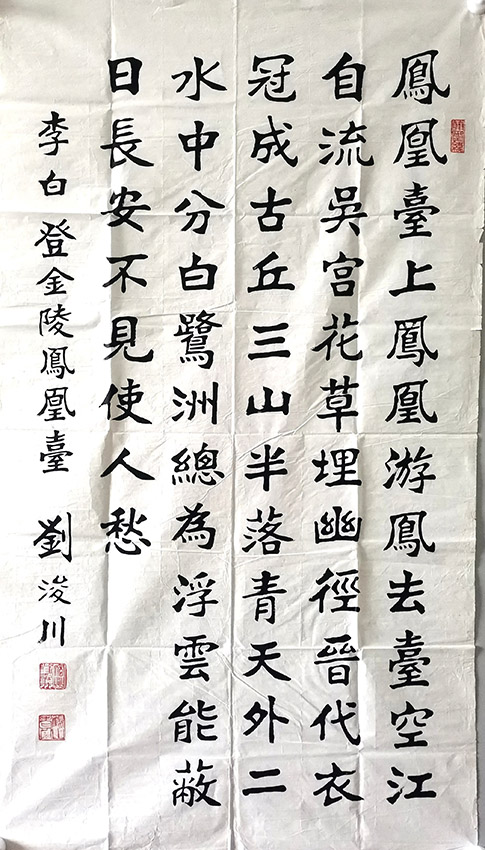 鳳凰臺上鳳凰游鳳去臺空江
自流吳宮花草埋幽徑晉代衣
冠成古丘三山半落青天外二
水中分白鷺洲總為浮雲能蔽
日長安不見使人愁
李白登金陵鳳凰臺 劉浚川